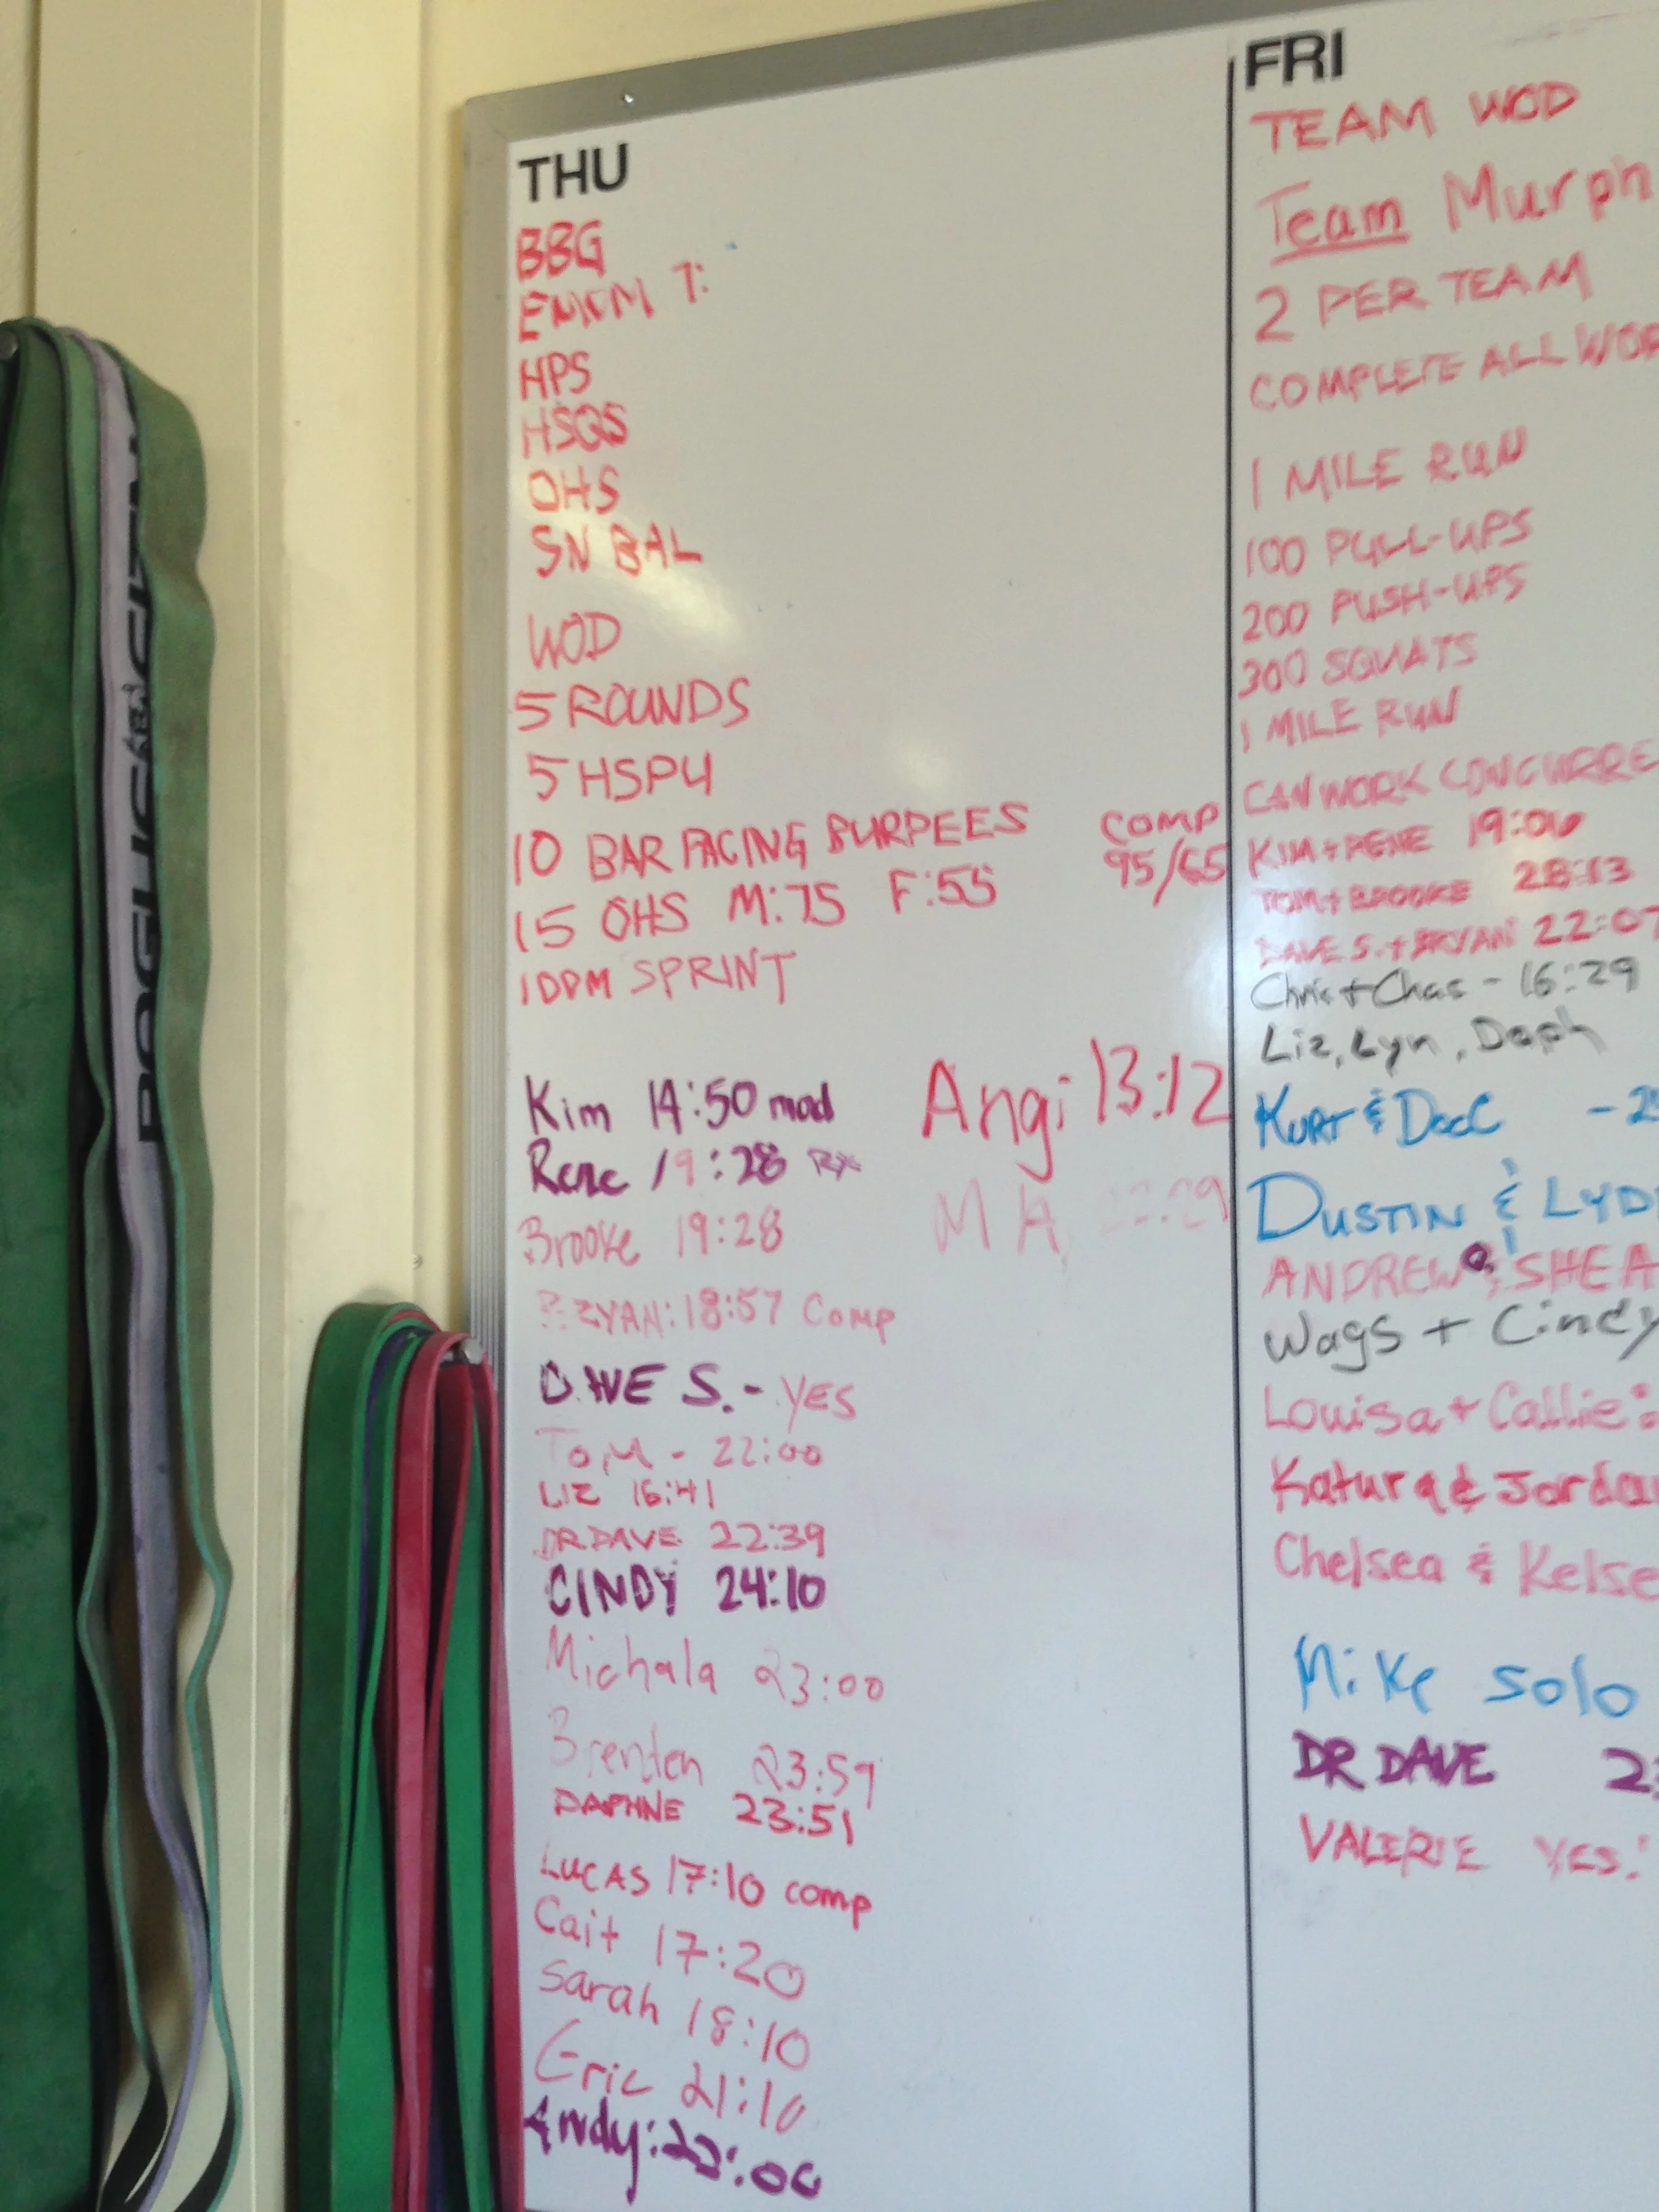 THU
BBG
EMOM 7:
HPS
HSQS
OHS
SN BAL
WOD
5 ROUNDS
5 HSPU
10 BAR FACING BURPEES
15 OHS M:75 F:55
COMP
95/65
100M SPRINT
Kim 14:50 mod
Angi 13:12
Rene 19:28 RX
M A
Brooke 19:28
BRYAN: 18:57 Comp
DAVE S. - YES
Tom - 22:00
LIZ 16:41
DR DAVE 22:39
CINDY 24:10
Michala 23:00
Brenden 23:59
DAPHNE 23:51
LUCAS 17:10 comp
Cait 17:20
Sarah 18:10
Eric 21:10
Andy:
FRI
TEAM WOD
Team Murph
2 PER TEAM
COMPLETE ALL WOR
1 MILE RUN
100 PULL-UPS
200 PUSH-UPS
300 SQUATS
1 MILE RUN
CAN WORK CONCURRE
KIM + RENE 19:06
TOM + BROOKE 28:13
DAVE S. + BRYAN 22:07
Chris + Chas - 16:29
Liz, Lyn, Daph
KURT & DeeC
DUSTIN & LYDI
ANDREW & SHEA
Wags + Cindy
Louisa + Callie:
Katura & Jordan
Chelsea & Kelse
Mike solo
DR DAVE
VALERIE YES!
ROGUE